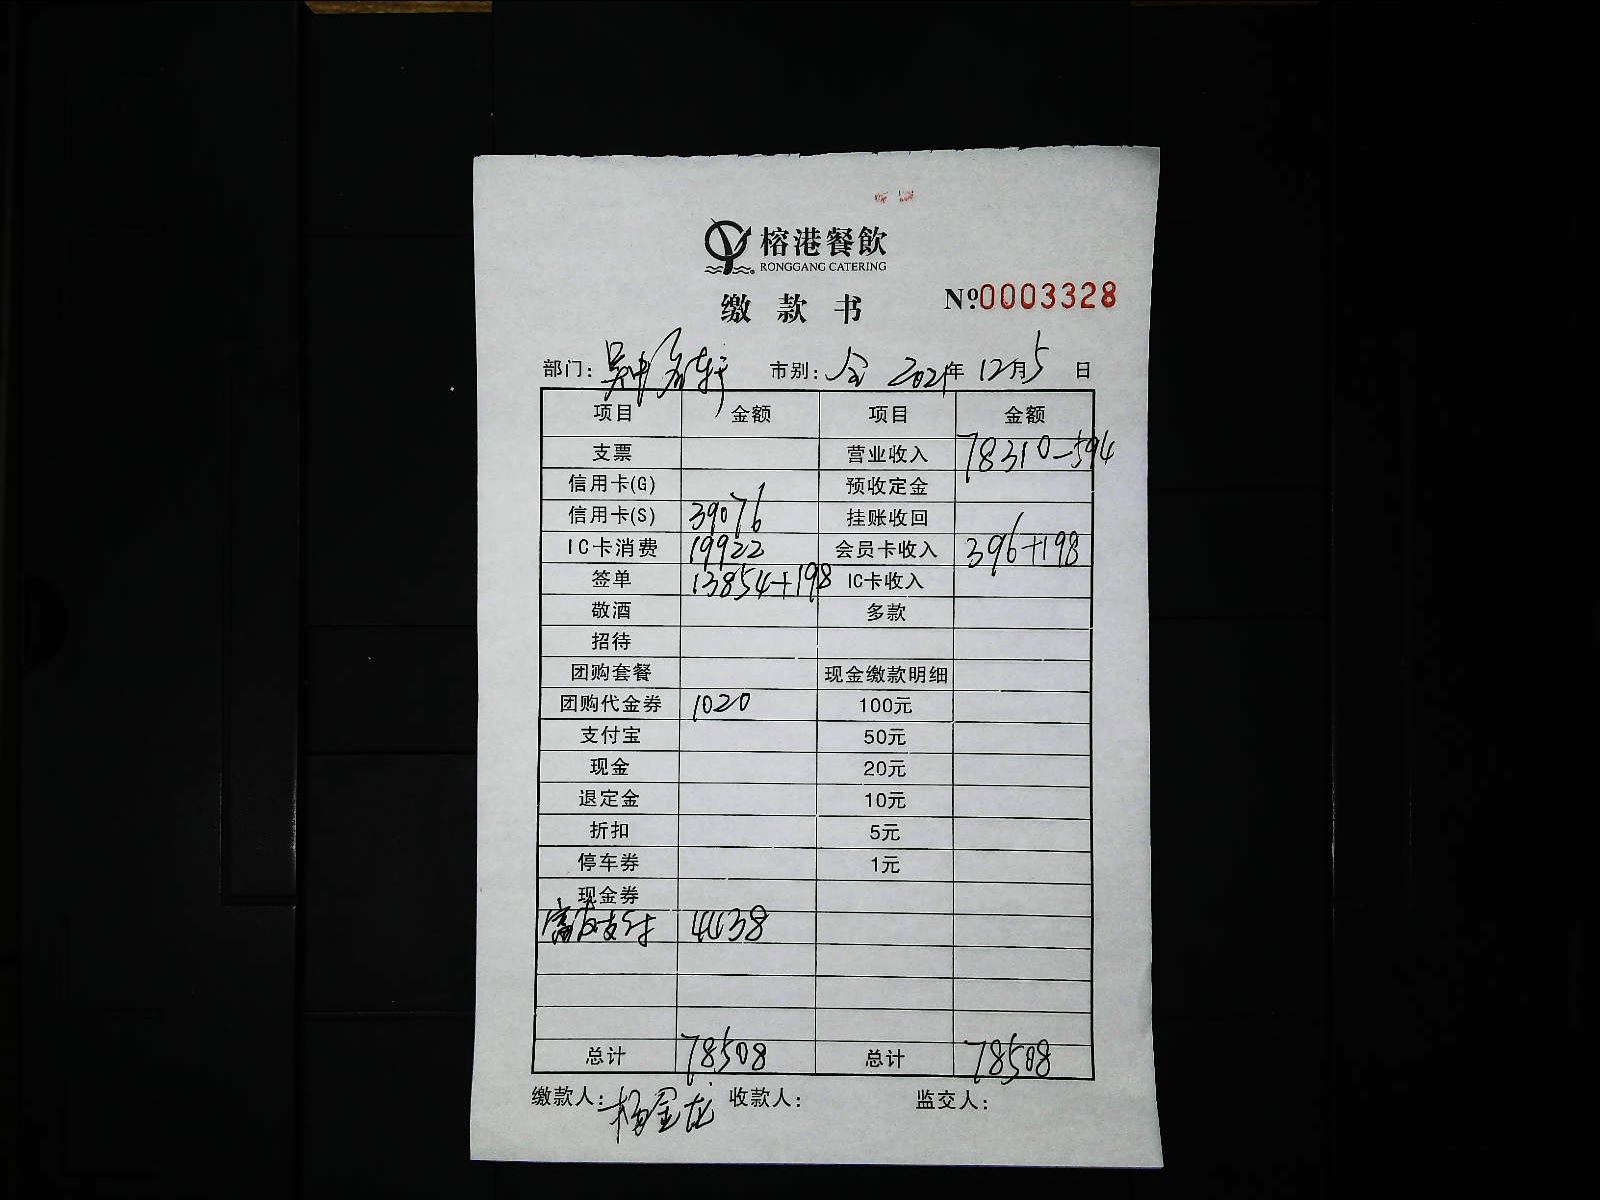 榕港餐飲
RONGGANG CATERING
缴款书
№0003328
部门: 吴中名轩 市别: 全 2021年 12月 5日
项目 金额 项目 金额
支票 营业收入 78310-594
信用卡(G) 预收定金
信用卡(S) 39076 挂账收回
IC卡消费 19922 会员卡收入 396+198
签单 13854+198 IC卡收入
敬酒 多款
招待
团购套餐 现金缴款明细
团购代金券 1020 100元
支付宝 50元
现金 20元
退定金 10元
折扣 5元
停车券 1元
现金券
支付 4438
总计 78508 总计 78508
缴款人: 杨金龙 收款人: 监交人: